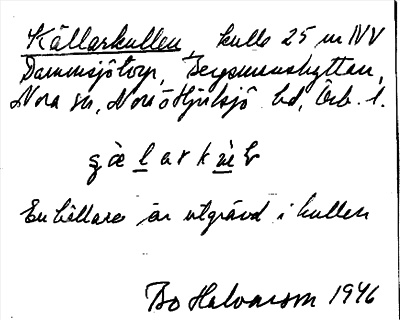 Källarkullen, kulle 25 m NV
Dammsjötorp, Bergsmanshyttan,
Nora sn, Nora o Hjulsjö bd, Örb. l.
En källare är utgrävd i kullen
Bo Halvarson 1946